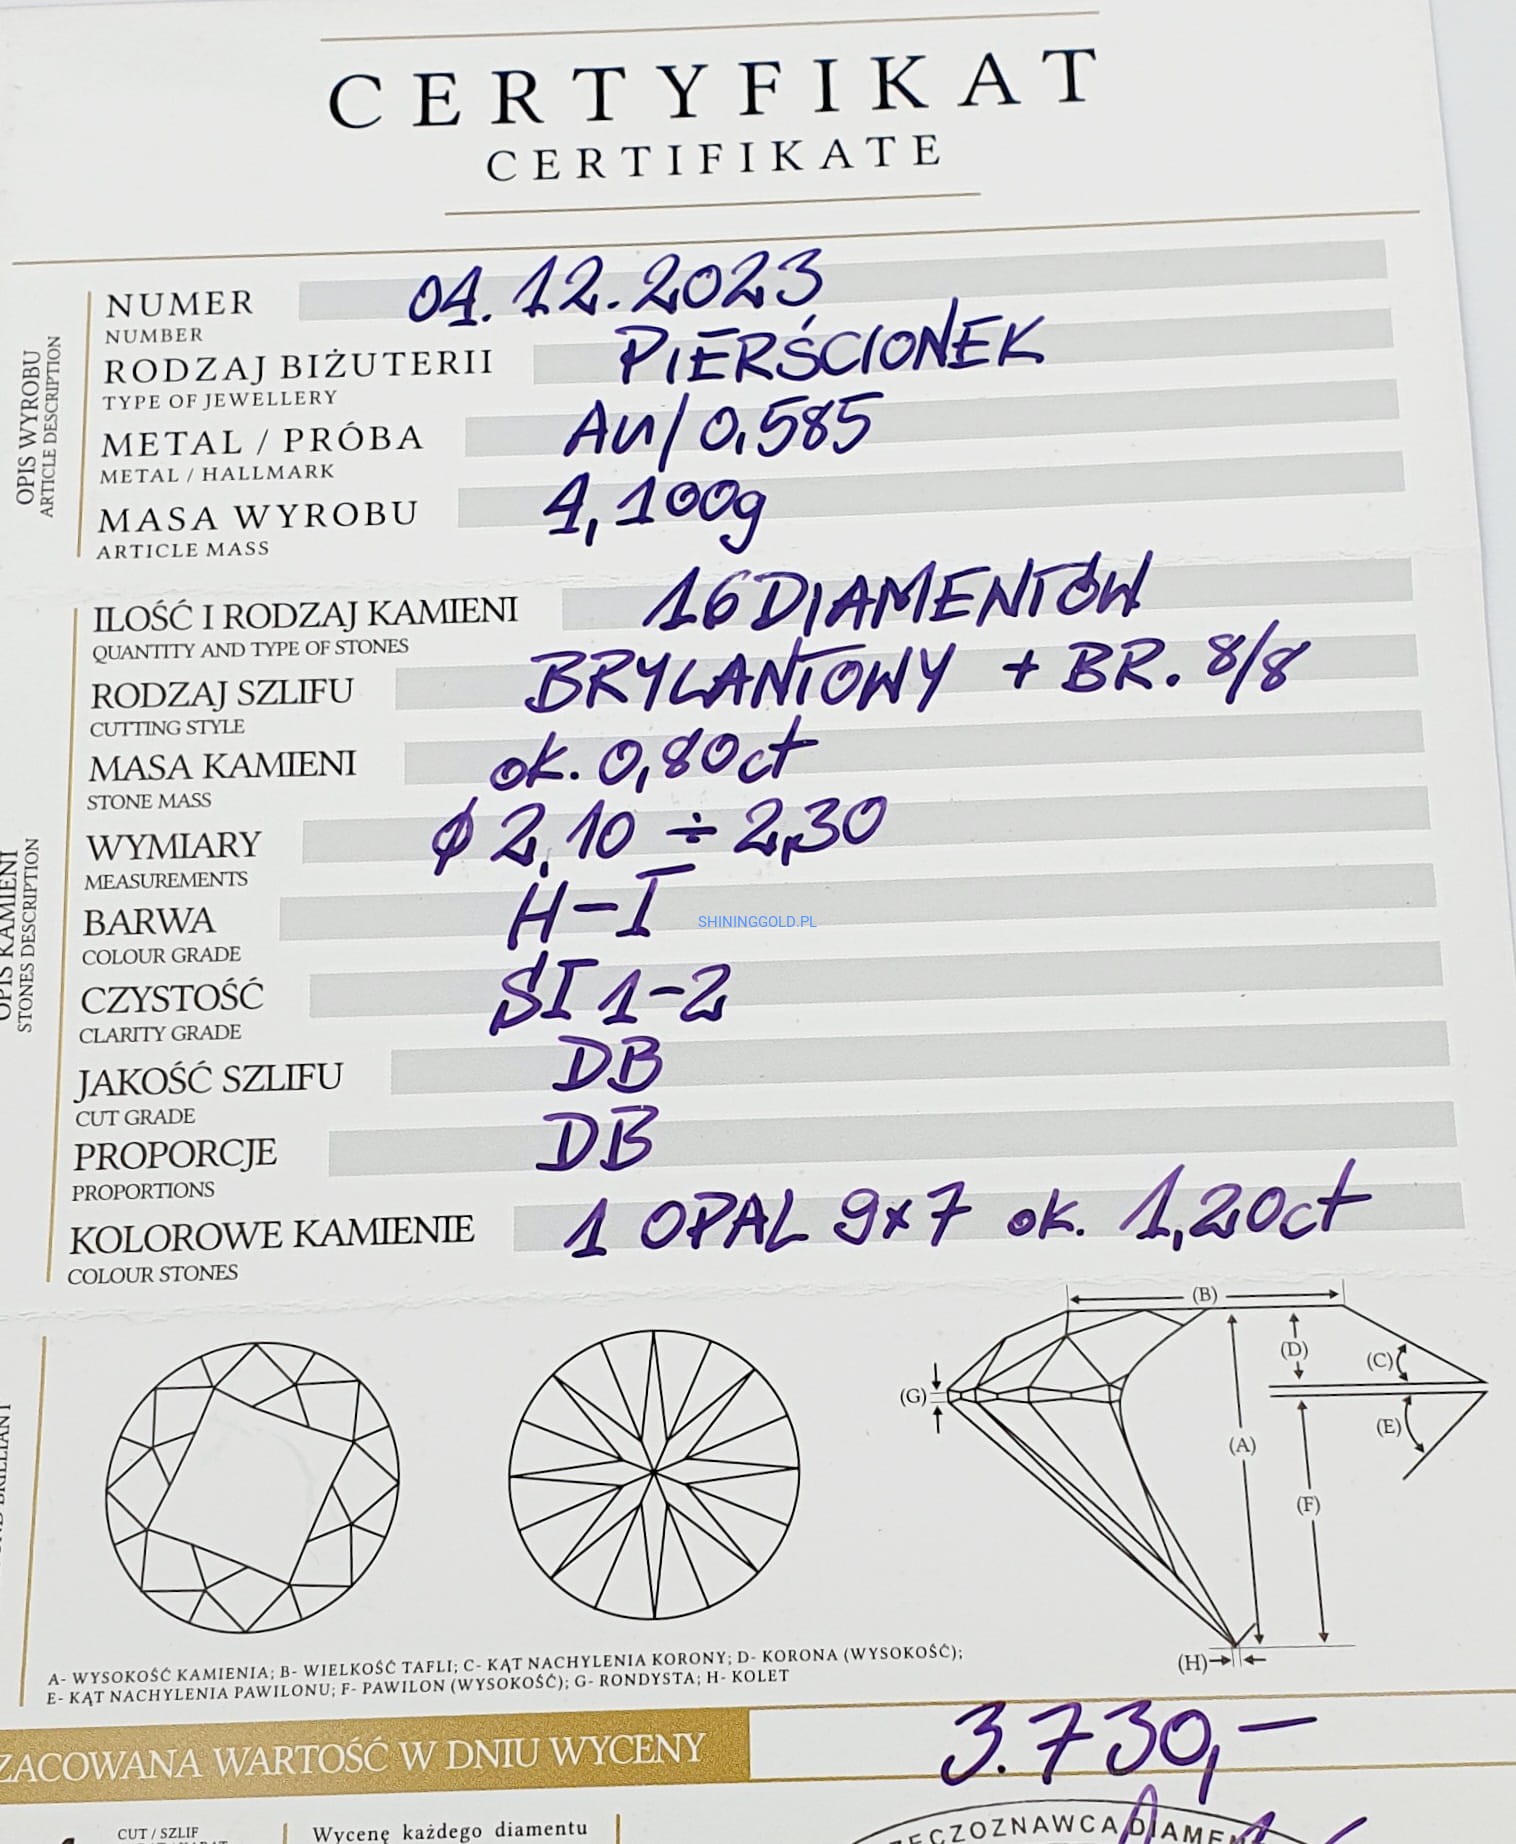 CERTYFIKAT
CERTIFIKATE
OPIS WYROBU
ARTICLE DESCRIPTION
NUMER 04.12.2023
NUMBER
RODZAJ BIŻUTERII PIERŚCIONEK
TYPE OF JEWELLERY
METAL / PRÓBA Au/0,585
METAL / HALLMARK
MASA WYROBU 4,100g
ARTICLE MASS
OPIS KAMIENI
STONES DESCRIPTION
ILOŚĆ I RODZAJ KAMIENI 16 DIAMENTÓW
QUANTITY AND TYPE OF STONES
RODZAJ SZLIFU BRYLANTOWY + BR. 8/8
CUTTING STYLE
MASA KAMIENI ok. 0,80ct
STONE MASS
WYMIARY ϕ 2,10 ÷ 2,30
MEASUREMENTS
BARWA H-I
COLOUR GRADE
SHININGGOLD.PL
CZYSTOŚĆ SI 1-2
CLARITY GRADE
JAKOŚĆ SZLIFU DB
CUT GRADE
PROPORCJE DB
PROPORTIONS
KOLOROWE KAMIENIE 1 OPAL 9x7 ok. 1,20ct
COLOUR STONES
(B)
(D)
(C)
(G)
(E)
(A)
(F)
(H)
A- WYSOKOŚĆ KAMIENIA; B- WIELKOŚĆ TAFLI; C- KĄT NACHYLENIA KORONY; D- KORONA (WYSOKOŚĆ);
E- KĄT NACHYLENIA PAWILONU; F- PAWILON (WYSOKOŚĆ); G- RONDYSTA; H- KOLET
ZACOWANA WARTOŚĆ W DNIU WYCENY 3.730,-
CUT / SZLIF
Wycenę każdego diamentu